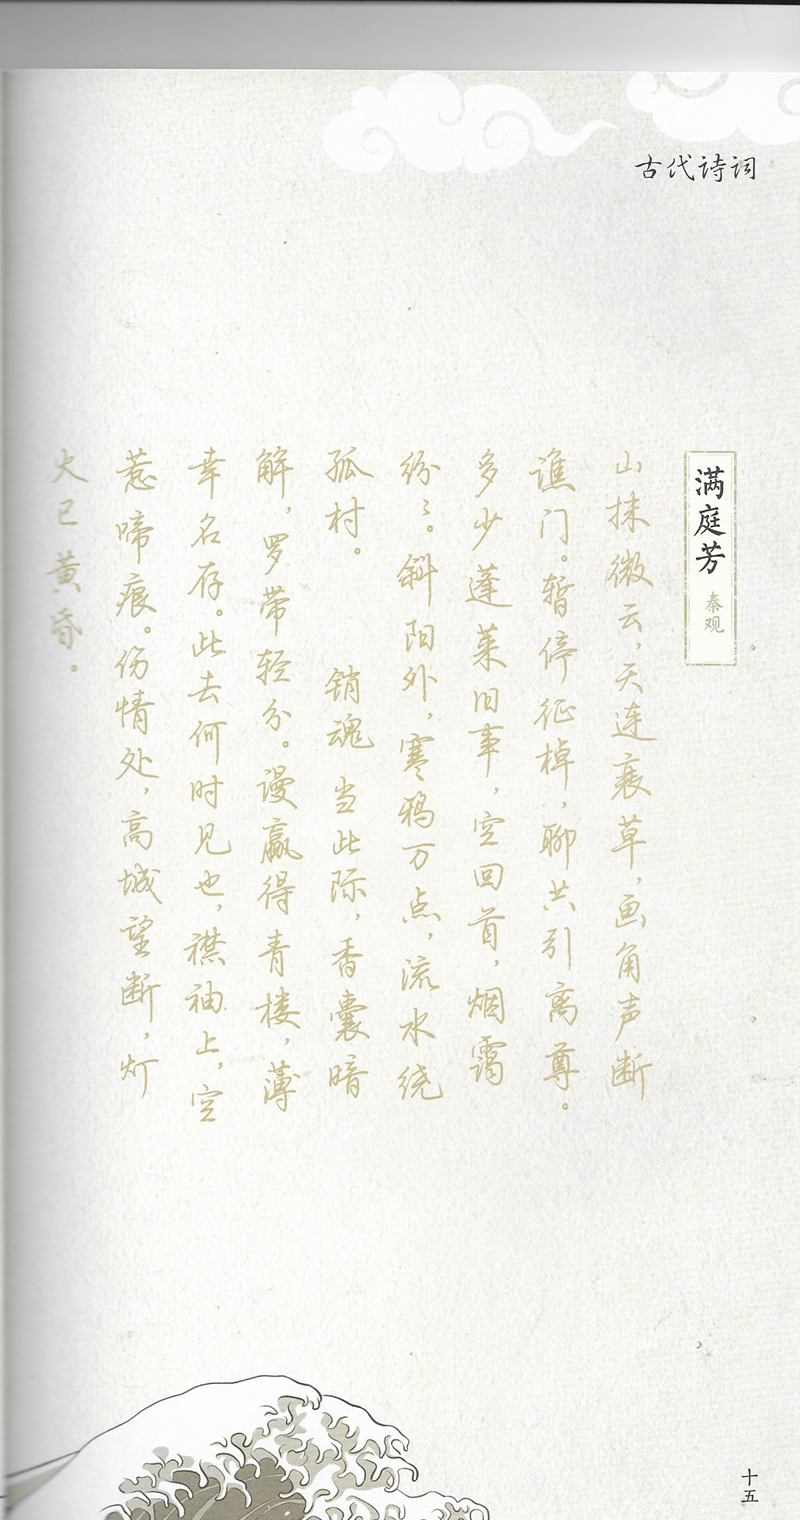 古代诗词
满庭芳 秦观
山抹微云，天连衰草，画角声断
谯门。暂停征棹，聊共引离尊。
多少蓬莱旧事，空回首，烟霭
纷々。斜阳外，寒鸦万点，流水绕
孤村。 销魂当此际，香囊暗
解，罗带轻分。谩赢得青楼，薄
幸名存。此去何时见也，襟袖上，空
惹啼痕。伤情处，高城望断，灯
火已黄昏。
十五